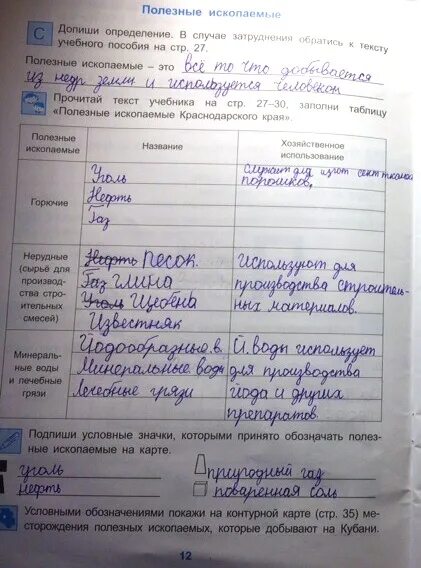 Полезные ископаемые
С Допиши определение. В случае затруднения обратись к тексту
учебного пособия на стр. 27.
Полезные ископаемые – это всё то что добывается
из недр земли и используется человеком
Прочитай текст учебника на стр. 27–30, заполни таблицу
«Полезные ископаемые Краснодарского края».
Полезные ископаемые
Название
Хозяйственное использование
Горючие
Уголь
Нефть
Газ
служит для изгот
порошков.
Нерудные (сырьё для производства строительных смесей)
Нефть песок.
Газ глина
Уголь Щебёна
Известняк
Используют для
производства строитель-
ных материалов.
Минеральные воды и лечебные грязи
Йодообразные в.
Минеральные воды
Лечебные грязи
Й. воды использует
для производства
йода и других
препаратов.
Подпиши условные значки, которыми принято обозначать полез-
ные ископаемые на карте.
уголь
природный газ
нефть
поваренная соль
Условными обозначениями покажи на контурной карте (стр. 35) ме-
сторождения полезных ископаемых, которые добывают на Кубани.
12